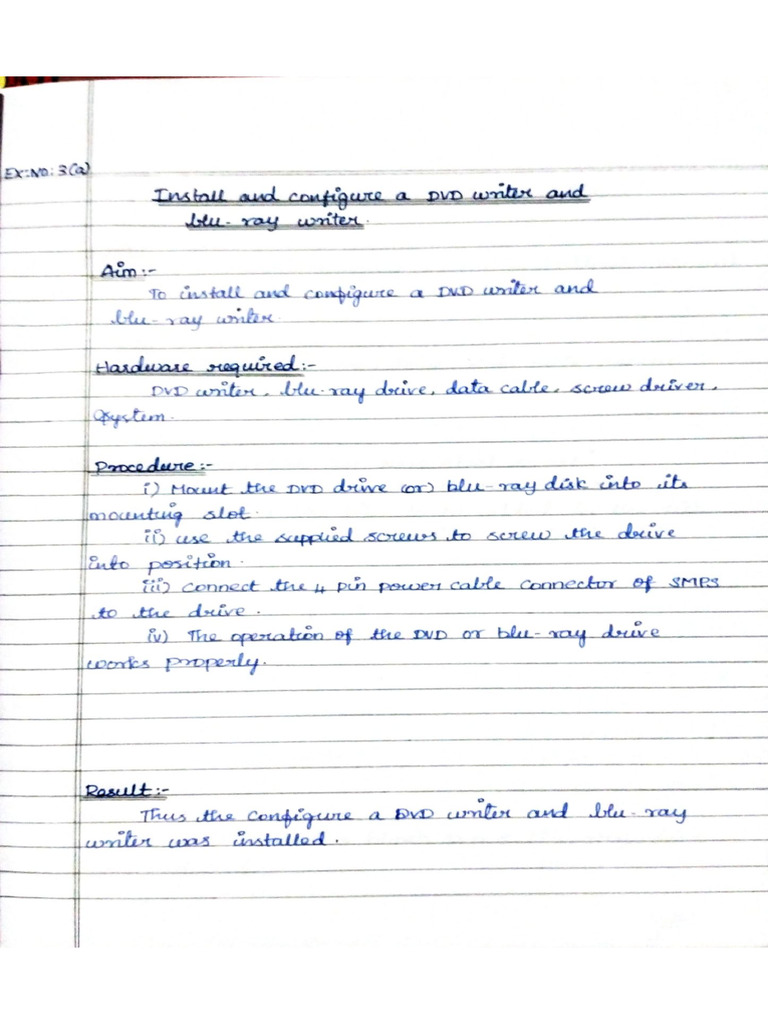 Ex:NO: 3(a)
Install and configure a DVD writer and
blu-ray writer.
Aim:-
To install and configure a DVD writer and
blu-ray writer.
Hardware required:-
DVD writer, blu-ray drive, data cable, screw driver,
system.
Procedure:-
i) Mount the DVD drive (or) blu-ray disk into its
mounting slot.
ii) use the supplied screws to screw the drive
into position.
iii) connect the 4 pin power cable connector of SMPS
to the drive.
iv) The operation of the DVD or blu-ray drive
works properly.
Result:-
Thus the configure a DVD writer and blu-ray
writer was installed.